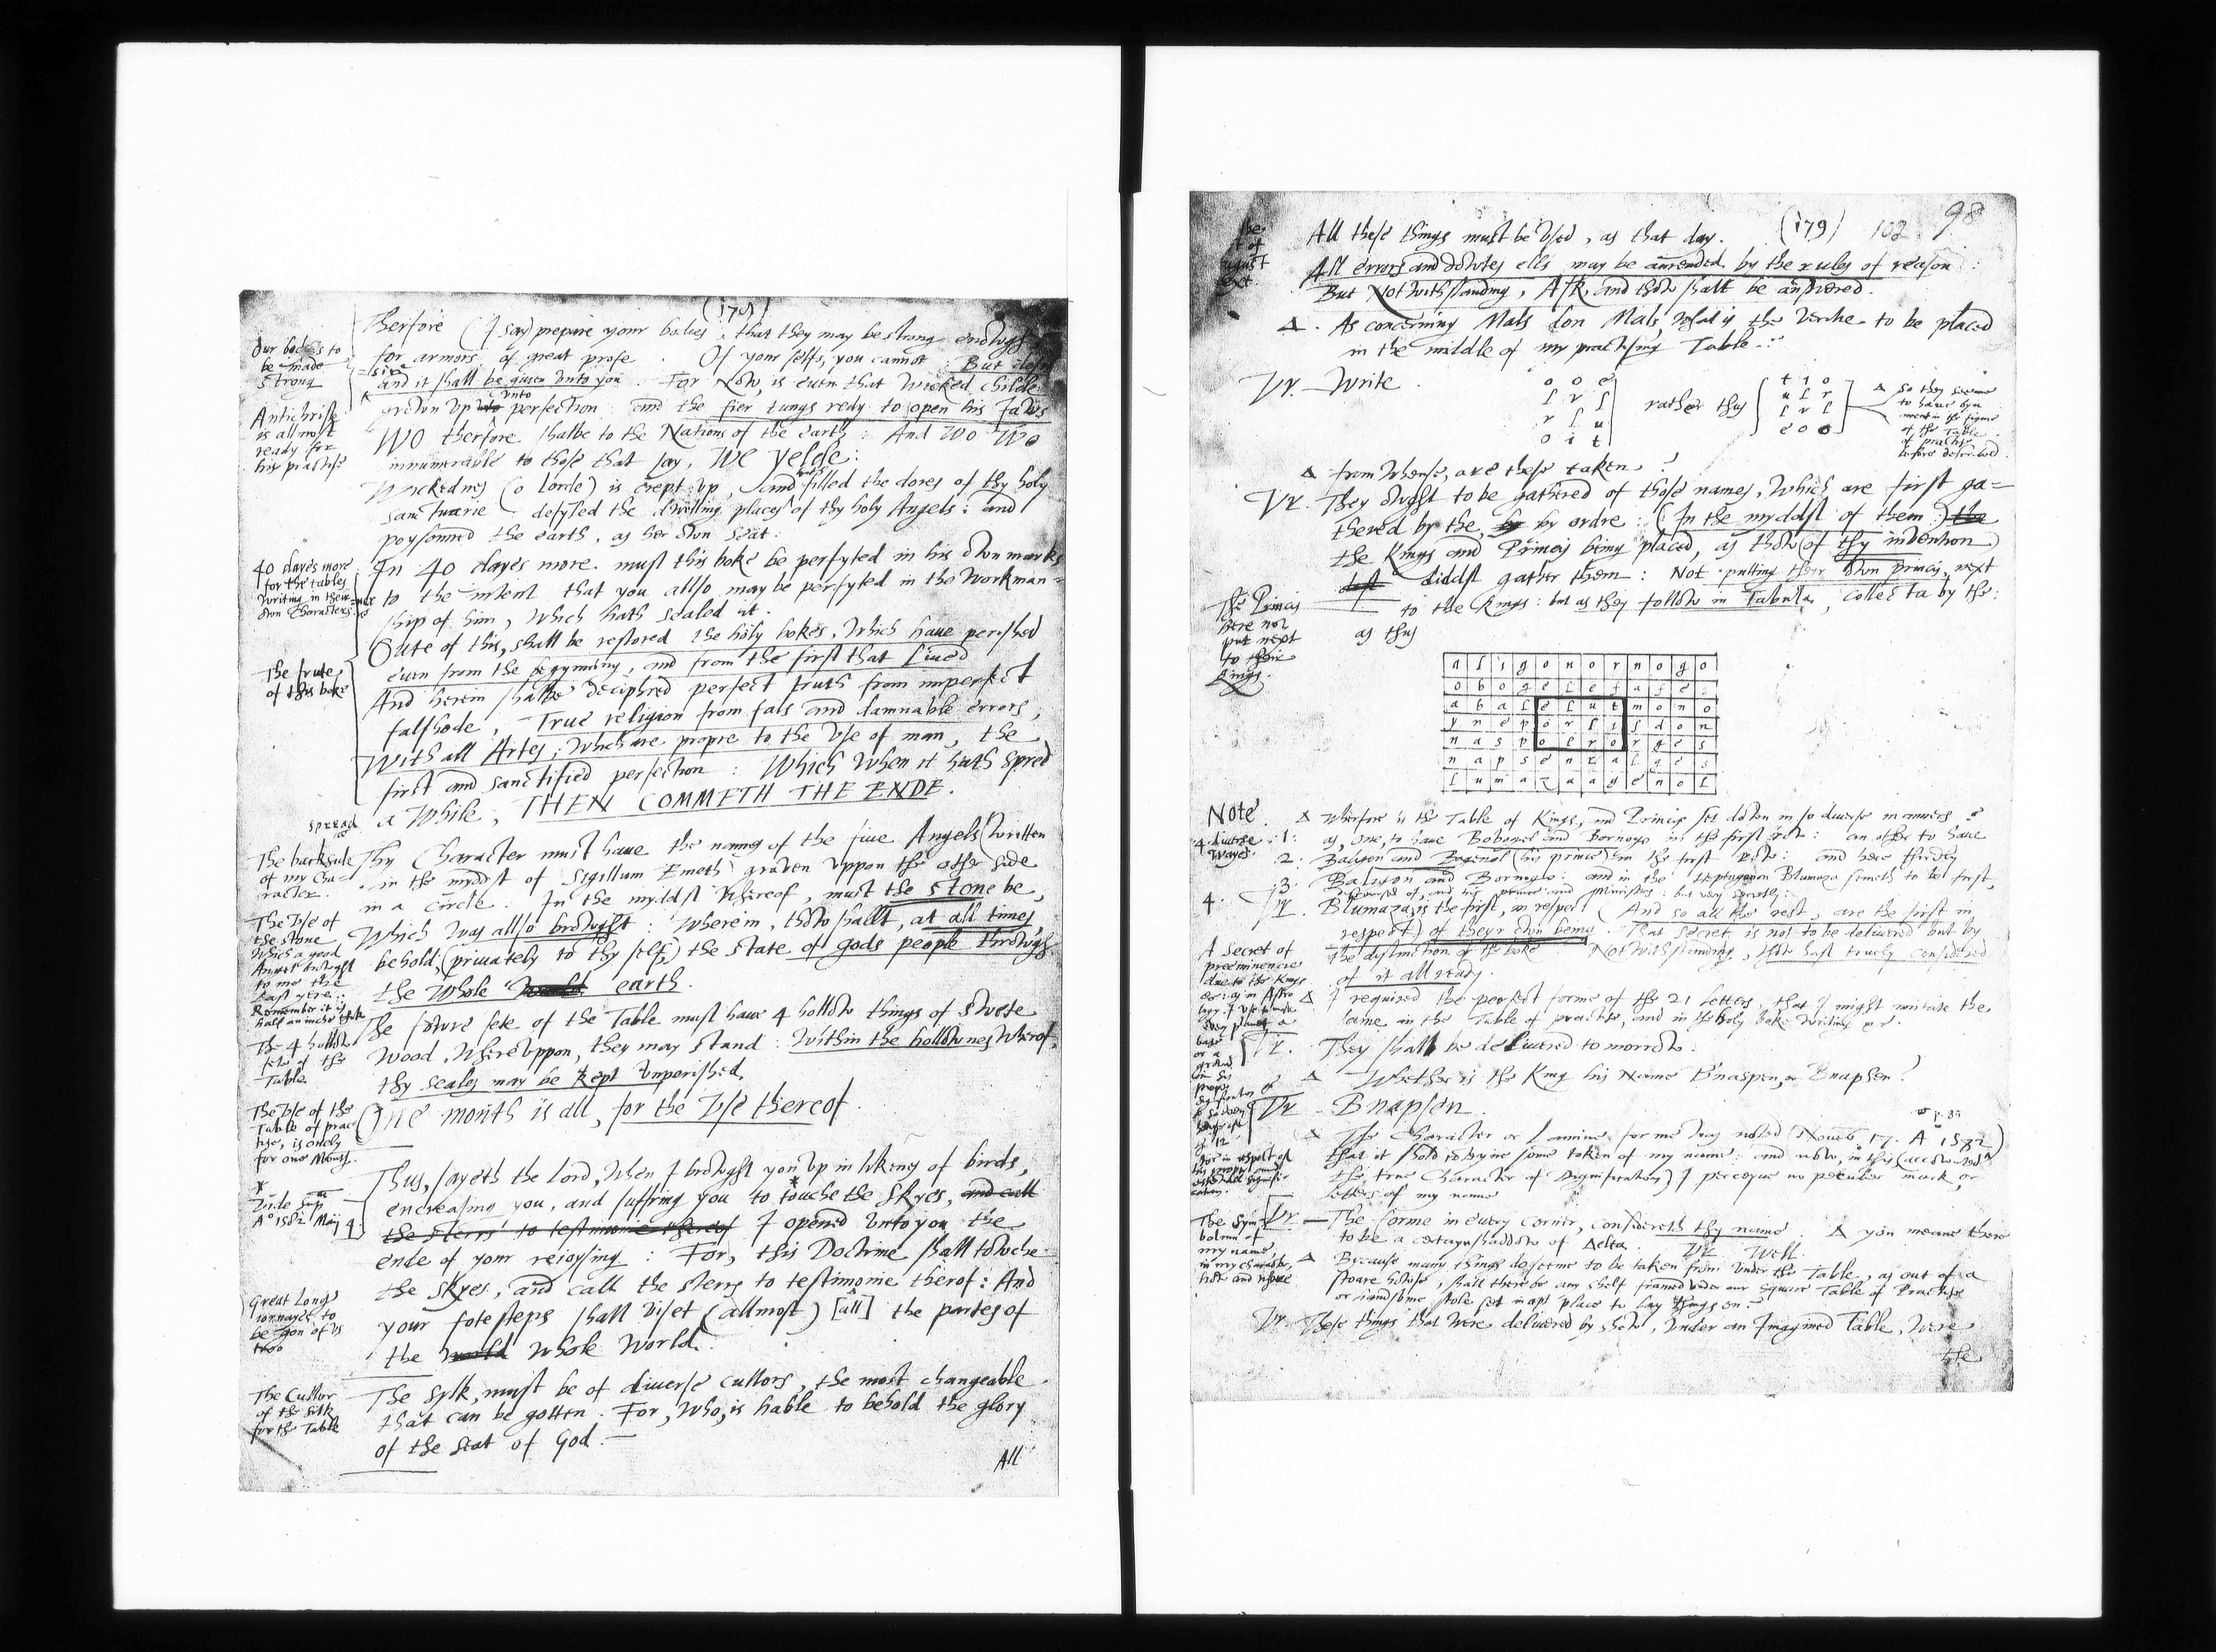 (178)
Therfore (I say) prepare your bodies, that they may be strong enowgh
for armors of great profe. Of your selfs, you cannot: But
and it shall be given unto you. For Now, is even that wicked childe
grown up unto perfection: and the fier tungs redy to open his Jaws
WO therfore shalbe to the Nations of the earth: And WO WO
innumerable to those that say, WE yelde:
Wickednes (o Lorde) is crept up, and filled the dores of thy holy
sanctuarie defyled the dwelling places of thy holy Angels: and
poysonned the earth, as her own seat:
In 40 dayes more must this boke be perfyted in his own marks
to the intent that you allso may be perfyted in the workman=
ship of him, which hath sealed it.
Oute of this, shall be restored the holy bokes, which have perished
even from the begynning, and from the first that Lived
And herein shalbe deciphred perfect truth from imperfect
falshode, True religion from fals and damnable errors,
With all Artes; which are propre to the use of man, the
first and sanctified perfection: Which when it hath spred
a While, THEN COMMETH THE ENDE.
Thy Character must have the names of the five Angels (written
in the myddst of Sigillum Emeth) graven uppon the other side
in a circle. In the myddst whereof, must the stone be,
Which was allso browght: Wherein, thow shallt, at all times
behold, (privately to thy self,) the State of gods people throwgh
the Whole earth.
The fowre fete of the Table must have 4 hollow things of swete
wood, whereuppon, they may stand: within the hollownes wherof,
thy seales may be kept unperished.
One month is all, for the Use thereof.
Thus, sayeth the Lord, When I browght you up in likenes of birds,
encreasing you, and suffring you to towche the skyes, and call
the sterrs to testimonie thereof I opened unto you the
ende of your rejoysing: For, this Doctrine shall towche
the skyes, and call the sterrs to testimonie therof: And
your fotesteps shall viset (allmost) [all] the partes of
the world Whole World.
The sylk, must be of diverse cullors, the most changeable
that can be gotten. For, who, is hable to behold the glory
of the seat of God.
All
Our bodies to
be made
strong
Antichriste
is allmost
ready for
his practise
40 dayes more
for the tables
writing in their
own Characters
The frute
of this boke
spread
The backside
of my Cha=
racter.
The Use of
the stone
Which a good
Angel browght
to me the
Last yere:
Remember it is
half an inche thik
The 4 hollow
fete of the
Table.
The Use of the
Table of prac
tise, is onely
for one Month.
Vide sup
A° 1582 May 4
Great Long
iornayes to
be gon of us
two
The Cullor
of the silk
for the Table
(179) 102 98
All these things must be Used, as that day.
All errors and dowtes ells may be amended by the rules of reason:
But Notwithstanding, Ask, and thow shalt be answered.
Δ. As concerning Mals Don Mals, What is the Verche to be placed
in the middle of my practising Table.
Ur. Write.
o o e
l r l
r l u
o i t
rather thus
t i o
u l r
l r l
e o o
Δ So they seeme
to have byn
ment in the forme
of the Table
of practise
before described.
Δ from whense, are these taken?
Ur. They owght to be gathered of those names, Which are first ga=
thered by the, by by ordre: (In the myddst of them) the
the Kings and Princes being placed, as thow (of thy invention)
didst gather them: Not putting their own princis, next
to the Kings: but as they follow in Tabula, Collecta by the:
as thus
The Princis
here not
put next
to their
kings.
a l i g o n o r n o g o
o b o g e l e f a f e s
a b a l e l u t m o n o
y n e p o r s i s d o n
n a s p o l r o r g e s
n a p s e n z a l g e s
l u m a z a a g e n o l
Note
4 diverse
wayes
Δ Wherfore is the Table of Kings, and Princis set down in so diverse manners?
1: as, one, to have Bobogel and Bornogo in the first : an other to have
2: Baligon and Bagenol (his prince) in the first : and here thirdly
3. Baligon and Bornogo: and in the Heptagonon Blumaza semeth to be first,
4.
Ur. Blumaza, is the first, in respect (And so all the rest, are the first in
respect) of theyr own being. That secret, is not to be delivered but by
the distinction of the boke. Notwithstanding, thow hast truely considered
of it allready.
Δ I required the perfect forme of the 21 letters, that I might imitate the
same, in the Table of practise, and in the holy boke writing
Ur. They shall be delivered to morrow.
Δ Whether is the King his Name Bnaspen, or Bnapsen?
Ur Bnapsen.
Δ The Character or Lamine for me was noted (Novemb 17. A 1582)
that it shold conteyne some token of my name: and now, in this (accownted
the true Character of Dignification) I perceyve no peculier mark, or
letters of my name
Ur—The forme in every corner, considereth thy name. Δ you meane there
to be a certayn shaddow of Delta. Ur Well.
Δ Because many things do seeme to be taken from under the Table, as out of a
store howse, shall there be any shelf framed under our square Table of Practise
or handsome stole set in apt place to lay things on?
Ur. These things that were delivered by shew, under an Imagined Table, were
the
A Secret of
preeminence
due to the Kings
The Sym=
bolum of
my name,
in my character,
how and where